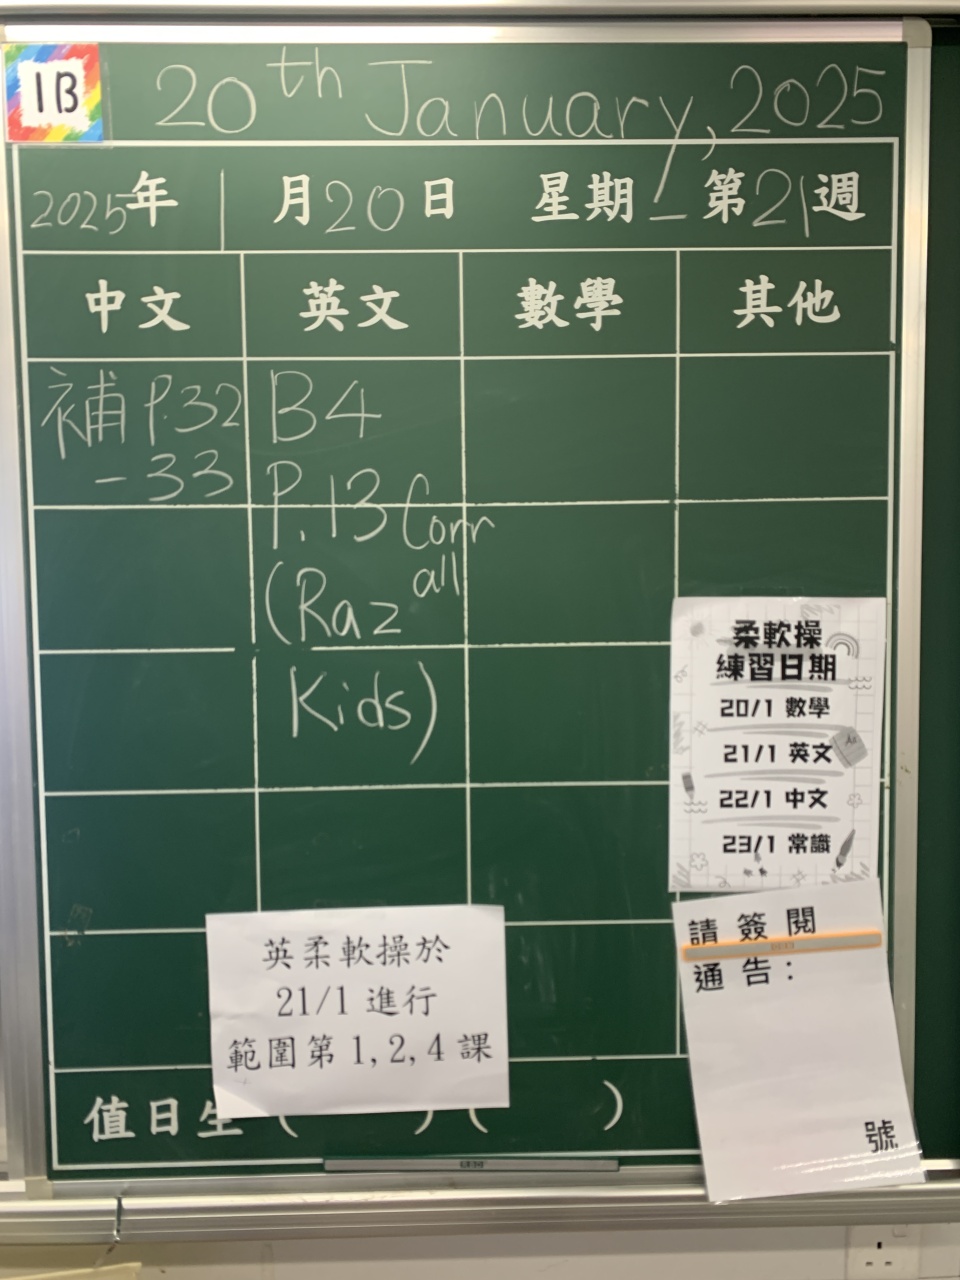 1B
20th January, 2025
2025年 1 月20日 星期一 第21週
中文 英文 數學 其他
補 P.32
-33
B4
P.13 Corr
all
(Raz
Kids)
柔軟操
練習日期
20/1 數學
21/1 英文
22/1 中文
23/1 常識
請簽閱
通告：
號
英柔軟操於
21/1 進行
範圍第 1, 2, 4 課
值日生 ( ) ( )